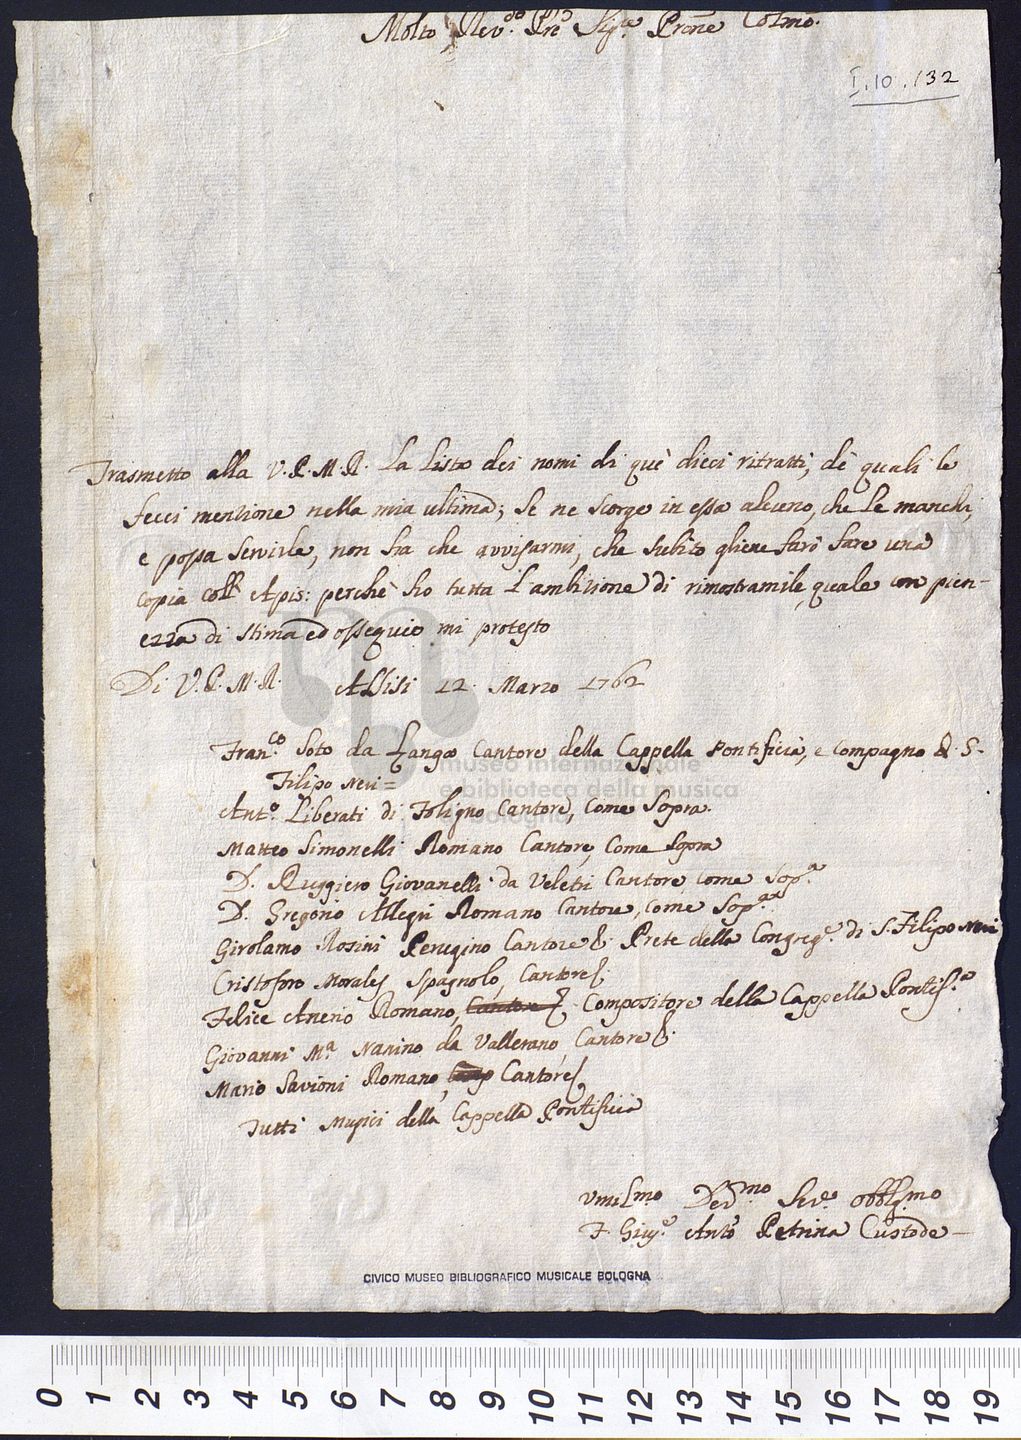 Molto Rev:do Pre Sig:e Prone Colmo.
I.10.132
Trasmetto alla V.P.M.R. La Lista dei nomi di què dieci ritratti, dè quali le
feci menzione nella mia ultima; se ne scorge in essa alcuno, che Le manchi,
e possa servirle, non ha che avvisarmi, che subito gliene farò fare una
copia coll' Apis: perchè ho tutta L'ambizione di rimostramile, quale con pien-
ezza di stima ed ossequio mi protesto
Di V.P.M.R. Assisi 12 Marzo 1762
Fran:co Soto da Langa Cantore della Cappella Pontificia, e Compagno di S.
Filipo Neri =
Ant:o Liberati di Foligno Cantore, Come Sopra.
Matteo Simonelli Romano Cantore, Come Sopra
D. Ruggiero Giovanelli da Veletri Cantore come Sop:a
D. Gregorio Allegri Romano Cantore, come Sop:a
Girolamo Rosini Perugino Cantore &. Prete della Congreg:e di S. Filipo Neri
Cristoforo Morales Spagnolo, Cantore &.
Felice Anerio Romano, Cantore &. Compositore della Cappella Pontif:a
Giovanni M:a Nanino da Vallerano, Cantore &.
Mario Savioni Romano, Cantore &
Tutti Musici della Cappella Pontificia
Umilmo Devmo Ser:e obblgmo
F. Giu:e Ant:o Petrina Custode —
museo internazionale
e biblioteca della musica
bologna
CIVICO MUSEO BIBLIOGRAFICO MUSICALE BOLOGNA
0 1 2 3 4 5 6 7 8 9 10 11 12 13 14 15 16 17 18 19